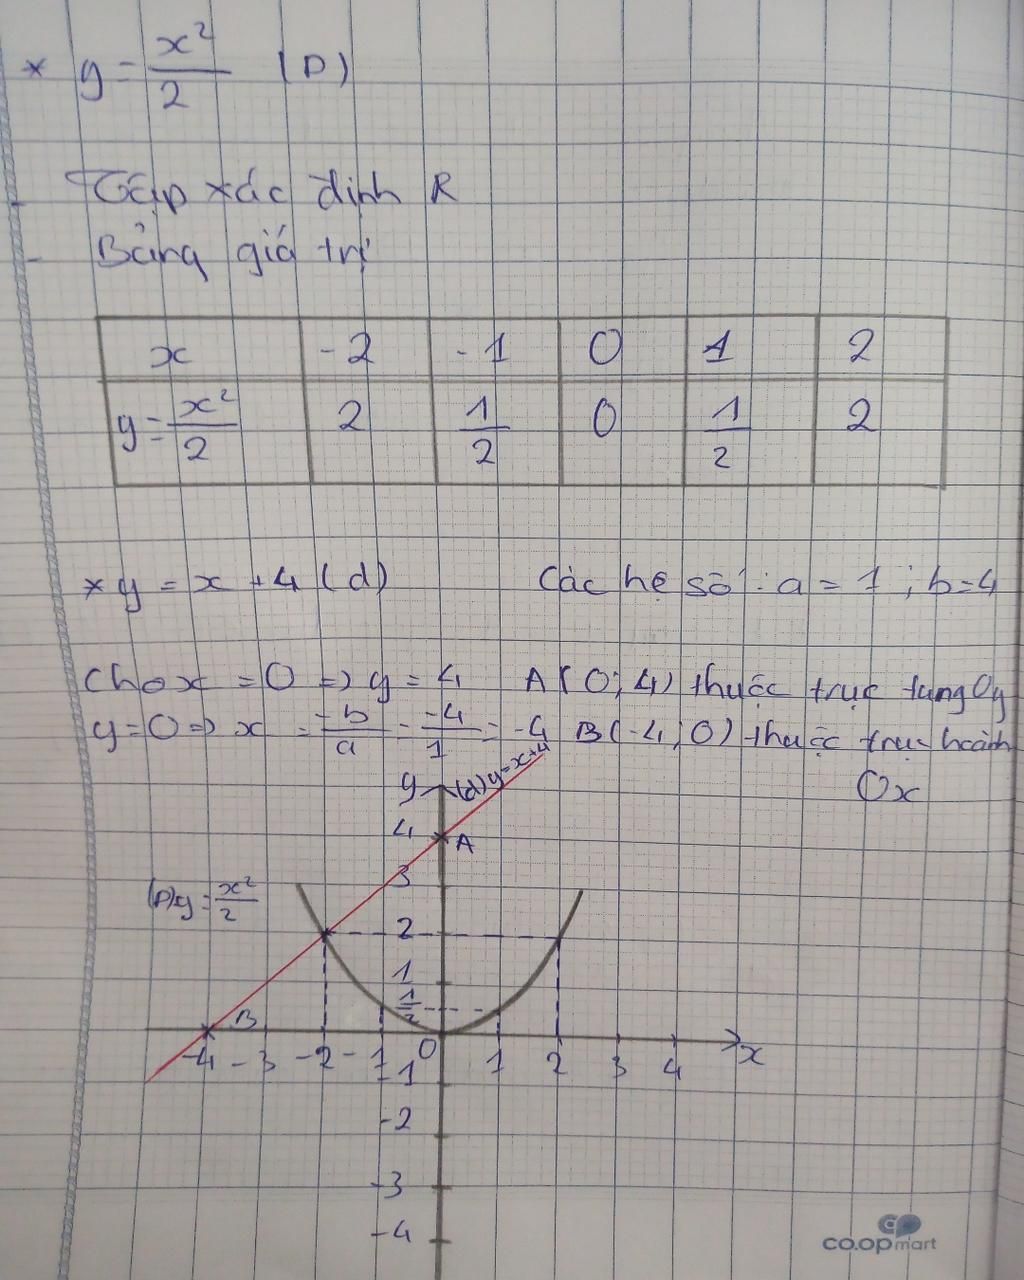 * y = x²/2 (P)
- Tập xác định R
- Bảng giá trị
x -2 -1 0 1 2
y = x²/2 2 1/2 0 1/2 2
* y = x + 4 (d) Các hệ số : a = 1 ; b = 4
Cho x = 0 => y = 4 A(0; 4) thuộc trục tung Oy
y = 0 => x = -b/a = -4/1 = -4 B(-4; 0) thuộc trục hoành
Ox
y (d) y = x + 4
4 A
3
(P) y = x²/2
2
1
1/2
B
-4 -3 -2 -1 O 1 2 3 4 x
-1
-2
-3
-4
co.opmart